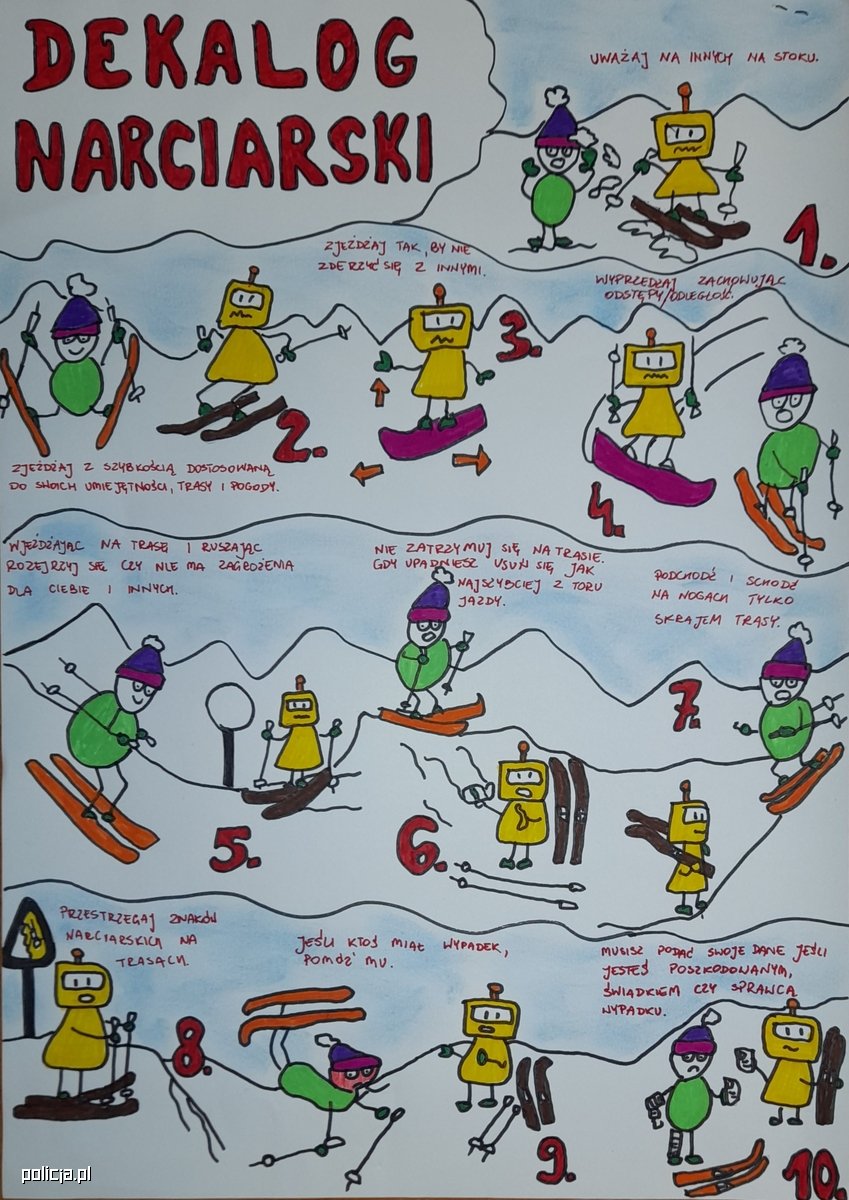 DEKALOG
NARCIARSKI
UWAŻAJ NA INNYCH NA STOKU.
1.
ZJEŻDŻAJ Z SZYBKOŚCIĄ DOSTOSOWANĄ
DO SWOICH UMIEJĘTNOŚCI, TRASY I POGODY.
2.
ZJEŻDŻAJ TAK, BY NIE
ZDERZYĆ SIĘ Z INNYMI.
3.
WYPRZEDZAJ ZACHOWUJĄC
ODSTĘPY/ODLEGŁOŚĆ.
4.
WJEŻDŻAJĄC NA TRASĘ I RUSZAJĄC
ROZEJRZYJ SIĘ CZY NIE MA ZAGROŻENIA
DLA CIEBIE I INNYCH.
5.
NIE ZATRZYMUJ SIĘ NA TRASIE.
GDY UPADNIESZ USUŃ SIĘ JAK
NAJSZYBCIEJ Z TORU
JAZDY.
6.
PODCHODŹ I SCHODŹ
NA NOGACH TYLKO
SKRAJEM TRASY.
7.
PRZESTRZEGAJ ZNAKÓW
NARCIARSKICH NA
TRASACH.
8.
JEŚLI KTOŚ MIAŁ WYPADEK,
POMÓŻ MU.
9.
MUSISZ PODAĆ SWOJE DANE JEŚLI
JESTEŚ POSZKODOWANYM,
ŚWIADKIEM CZY SPRAWCĄ
WYPADKU.
10.
policja.pl